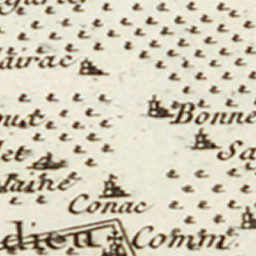 airac
Bonne
Sa
laine
Conac
dieu
Comm